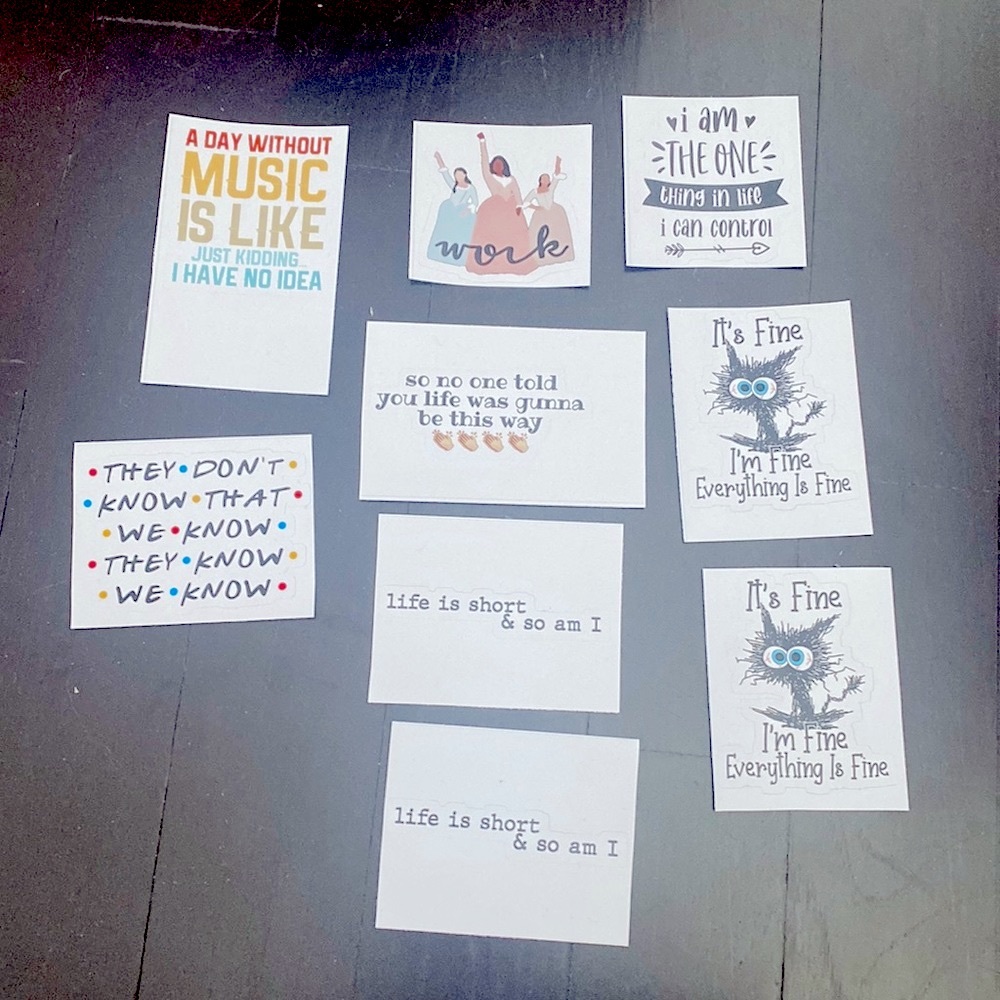 A DAY WITHOUT
MUSIC
IS LIKE
JUST KIDDING...
I HAVE NO IDEA
work
i am
THE ONE
thing in life
i can control
so no one told
you life was gunna
be this way
👏👏👏👏
It's Fine
I'm Fine
Everything Is Fine
THEY•DON'T
KNOW•THAT
WE•KNOW
THEY•KNOW
WE•KNOW
life is short
& so am I
It's Fine
I'm Fine
Everything Is Fine
life is short
& so am I